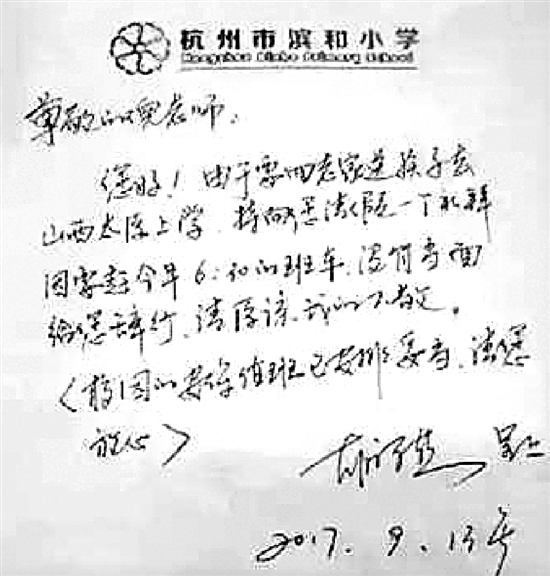 杭州市滨和小学
Hangzhou Binhe Primary School
尊敬的倪老师:
您好!由于要回老家送孩子去
山西太原上学,特向您请假一个礼拜
因要赶今早6:30的班车,没有当面
给您辞行,请原谅我的不敬。
(校园的安保值班已安排妥当,请您
放心)
呈上
2017.9.13号